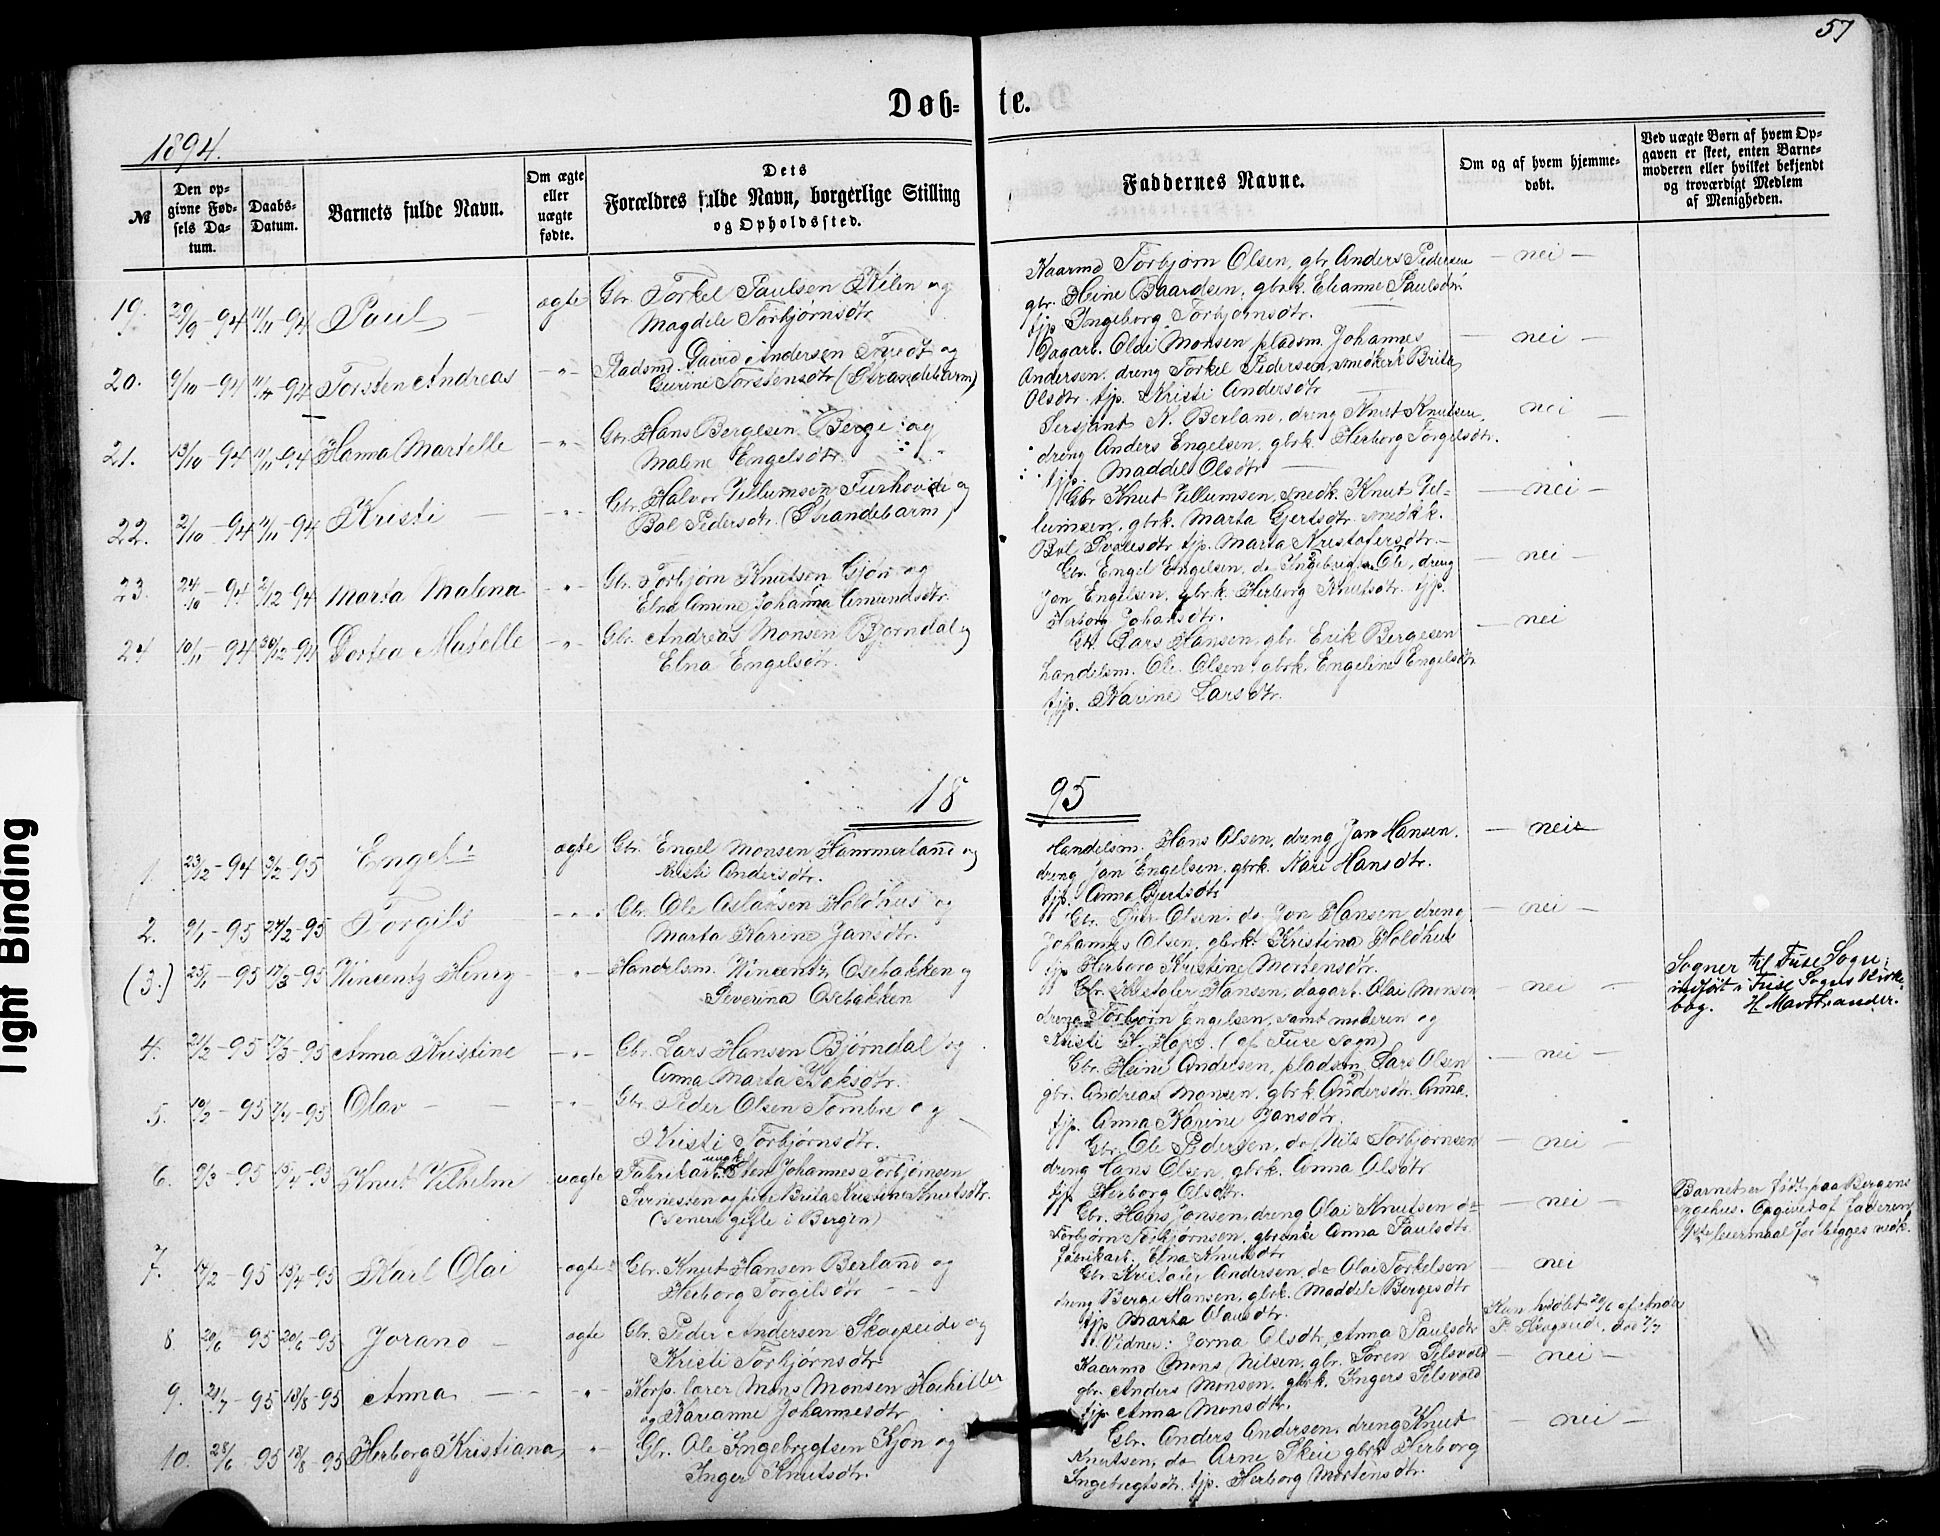 57
Døb-
te.
1894.
№
Den op-
givne Fød-
sels Da-
tum.
Daabs-
Datum.
Barnets fulde Navn.
Om ægte
eller
uægte
fødte.
Dets
Forældres fulde Navn, borgerlige Stilling
og Opholdssted.
Faddernes Navne.
Om og af hvem hjemme-
døbt.
Ved uægte Børn af hvem Op-
gaven er skeet, enten Barne-
moderen eller hvilket bekjendt
og troværdigt Medlem
af Menigheden.
19. 29/9-94 11/11-94 Paul ægte Gbr. Torkel Paulsen og
Magdele Torbjørnsdtr.
Kaarmd Torbjørn Olsen, gbr Anders Pedersen
gbr. Heine Baardsen, gbrk. Elianne Paulsdtr
tjp Ingeborg Torbjørnsdtr.
- nei -
20. 9/10-94 11/11-94 Torsten Andreas -"- Pladsmd. David Andersen Tvedt og
Gurine Torstensdtr (Strandebarm)
Dagarb. Olai Monsen, pladsm. Johannes
Andersen. dreng Torkel Pedersen, smedkerk Brita
Olsdtr. tjp. Kristi Andersdtr
- nei -
21. 13/10-94 11/11-94 Hanna Martelle -"- Gbr Hans Bergesen Berge og
Malene Engelsdtr.
Sersjant N. Berland, dreng Knut Knutsen,
dreng Anders Engelsen, gbrk. Herborg Torgilsdtr.
tjp. Maddele Olsdtr
nei -
22. 2/10-94 11/11-94 Kristi -"- Gbr. Halvor Villumsen Furhovde og
Bol Pedersdtr. (Strandebarm)
Gbr Knut Villumsen, snedk. Knut Vil-
lumsen, gbrk. Marta Gjertsdtr snedkk.
Bol tjp. Marta Kristofersdtr.
- nei -
23. 24/10-94 2/12-94 Marta Malena -"- Gbr. Torbjørn Knutsen Gjøn og
Elna Amine Johanna Amundsdtr.
Gbr. Engel Engelsen, do Ingebrigt Ole, dreng
Jon Engelsen, gbrk. Herborg Knutsdtr. tjp.
Herborg Johansdtr.
- nei -
24 10/11-94 30/12-94 Dortea Matelle -"- Gbr. Andreas Monsen Bjørndal og
Elna Engelsdtr.
Gbr. Lars Hansen, gbr Erik Bergesen
handelsm. Ole Olsen, gbrk. Engeline Engelsdtr
tjp. Karine Larsdtr.
- nei
18 95
1. 23/12-94 3/2-95 Engel ægte Gbr. Engel Monsen Hammerland og
Kristi Andersdtr.
Handelsm. Hans Olsen, dreng Jan Hansen.
dreng Jan Engelsen, gbrk. Kari Hansdtr.
tjp. Anna Gjertsdtr
- nei -
2. 9/1-95 24/2-95 Torgils -"- Gbr. Ole Aslaksen Holdhus og
Marta Karine Jansdtr.
Gbr. Olsen. do Jon Hansen, dreng
Johannes Olsen, gbrk. Kristina Holdhus
tjp Herborg Kristine Mortensdtr.
- nei -
(3.) 25/1-95 17/3-95 Wincentz Henry -"- Handelsm. Wincentz Osebakken og
Severina Osebakken
Gbr. Kristofer Hansen, dagarb. Olai Monsen
dreng Torbjørn Engelsen, samt moderen og
Kristi Hope. (af Fuse Sogn)
- nei -
Sogner til Fuse Sogn;
indført i Fuse Sogns Kirke-
bog. H. Marthrander.
4. 21/2-95 17/3-95 Anna Kristine -"- Gbr. Lars Hansen Bjørndal og
Anna Marta
Gbr. Heine Andersen, pladsm Lars Olsen
gbr. Andreas Monsen, gbrk. Andersdtr. Anna.
tjp. Anna Karine Jansdtr.
- nei -
5. 10/2-95 7/4-95 Olav -"- Gbr. Peder Olsen Tombre og
Kristi Torbjørnsdtr.
Gbr. Ole Pedersen, do Nils Torbjørnsen
dreng Hans Olsen, gbrk. Anna Olsdtr
tjp Herborg Olsdtr.
- nei -
6. 9/3-95 15/4-95 Knut Vilhelm uægte Fabrikarb. ungk. Sten Johannes Torbjørnsen
og pige Brita Kristine Knutsdtr.
(senere gifte i Bergen)
Gbr. Hans Jonsen, dreng Olai Knutsen do
Torbjørn Torbjørnsen, gbrenke Anna Paulsdtr
fabrikarb. Elna Knutsdtr
- nei -
Barnet er født paa Bergens
sygehus. Opgivet af faderen
1ste leiermaal for begges vedk.
7. 17/2-95 15/4-95 Karl Olai ægte Gbr. Knut Hansen Berland og
Herborg Torgilsdtr
Gbr Kristofer Andersen, do Olai Torkelsen
dreng Berge Hansen, gbrk. Maddele Bergesdtr
tjp Marta Olausdtr.
- nei
8 20/6-95 20/6-95 Jorand - ægte Gbr. Peder Andersen Skogseide og
Kristi Torbjørnsdtr
Vidner: Jorna Olsdtr, Anna Paulsdtr
20/6 af
9. 21/7-95 18/8-95 Anna -"- Korp. lærer Mons Monsen og Karianne Johannesdtr
Kaarmd Mons Nilsen, gbr. Søren
gbr. Anders Monsen. gbrk. Ingers
tjp Anna Monsdtr.
- nei -
10. 28/6-95 18/8-95 Herborg Kristiana -"- Gbr. Ole Ingebrigtsen Gjøn og
Inger Knutsdtr.
Gbr. Anders Andersen, dreng Knut
Knutsen, do Arne Skeie gbrk Herborg
Ingebregtsdtr. tjp. Herborg Mortensdtr.
- nei -
Tight Binding